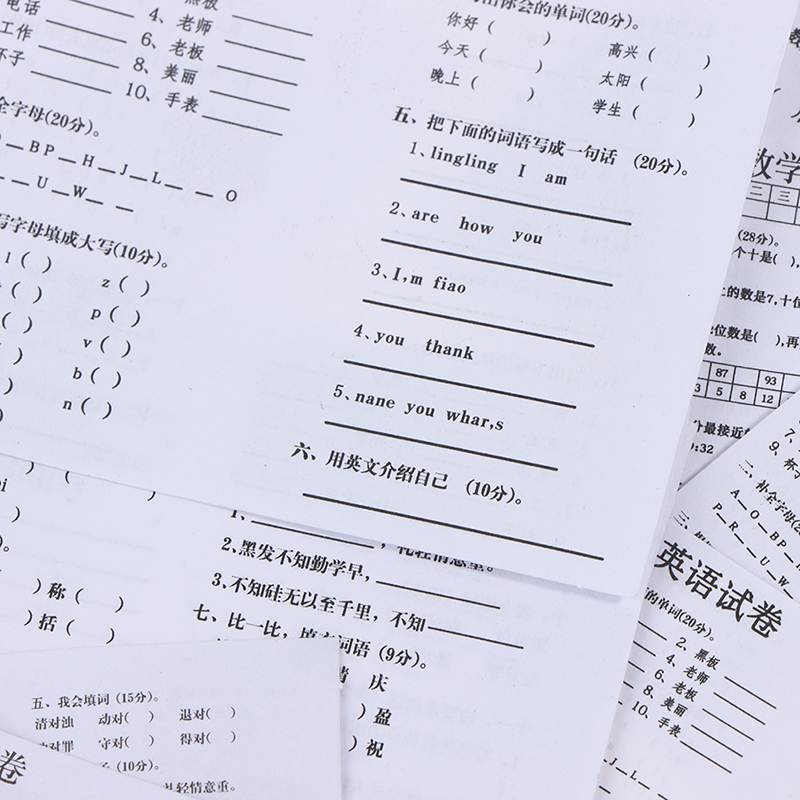 电话
黑板
工作
4、老师
6、老板
8、美丽
10、手表
全字母(20分)。
BP H J L O
U W
写字母填成大写(10分)。
l ( ) z ( )
( ) p ( )
( ) v ( )
( ) b ( )
( ) n ( )
你会的单词(20分)。
你好 ( ) 高兴 ( )
今天 ( ) 太阳 ( )
晚上 ( ) 学生 ( )
五、把下面的词语写成一句话 (20分)。
1、lingling I am
2、are how you
3、I,m fiao
4、you thank
5、nane you whar,s
六、用英文介绍自己 (10分)。
数学
二 三
(28分)。
个十是( ),
的数是7,十位
位数是( ),再
数。
87 93
3 5 8 12
最接近
:32
( )称 ( )
( )括 ( )
1、 ,礼轻情意重。
2、黑发不知勤学早,
3、不知硅无以至千里，不知
七、比一比，填 词语 (9分)。
庆
)盈
)祝
五、我会填词 (15分)。
清对浊 动对( ) 退对( )
对罪 守对( ) 得对( )
(10分)。
礼轻情意重。
卷
7、
9、杯子
二、补全字母(2
A O BP
P R U W
三、
英语试卷
的单词(20分)。
2、黑板
4、老师
6、老板
8、美丽
10、手表
J L